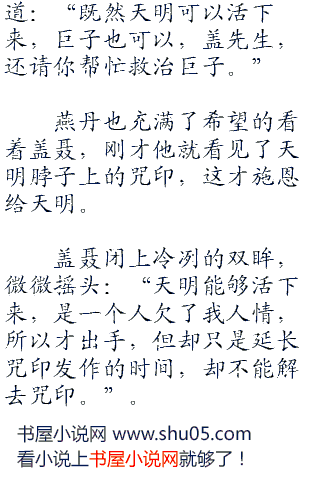 道：“既然天明可以活下
来，巨子也可以，盖先生，
还请你帮忙救治巨子。”
燕丹也充满了希望的看
着盖聂，刚才他就看见了天
明脖子上的咒印，这才施恩
给天明。
盖聂闭上冷冽的双眸，
微微摇头：“天明能够活下
来，是一个人欠了我人情，
所以才出手，但却只是延长
咒印发作的时间，却不能解
去咒印。”。
书屋小说网 www.shu05.com
看小说上书屋小说网就够了！